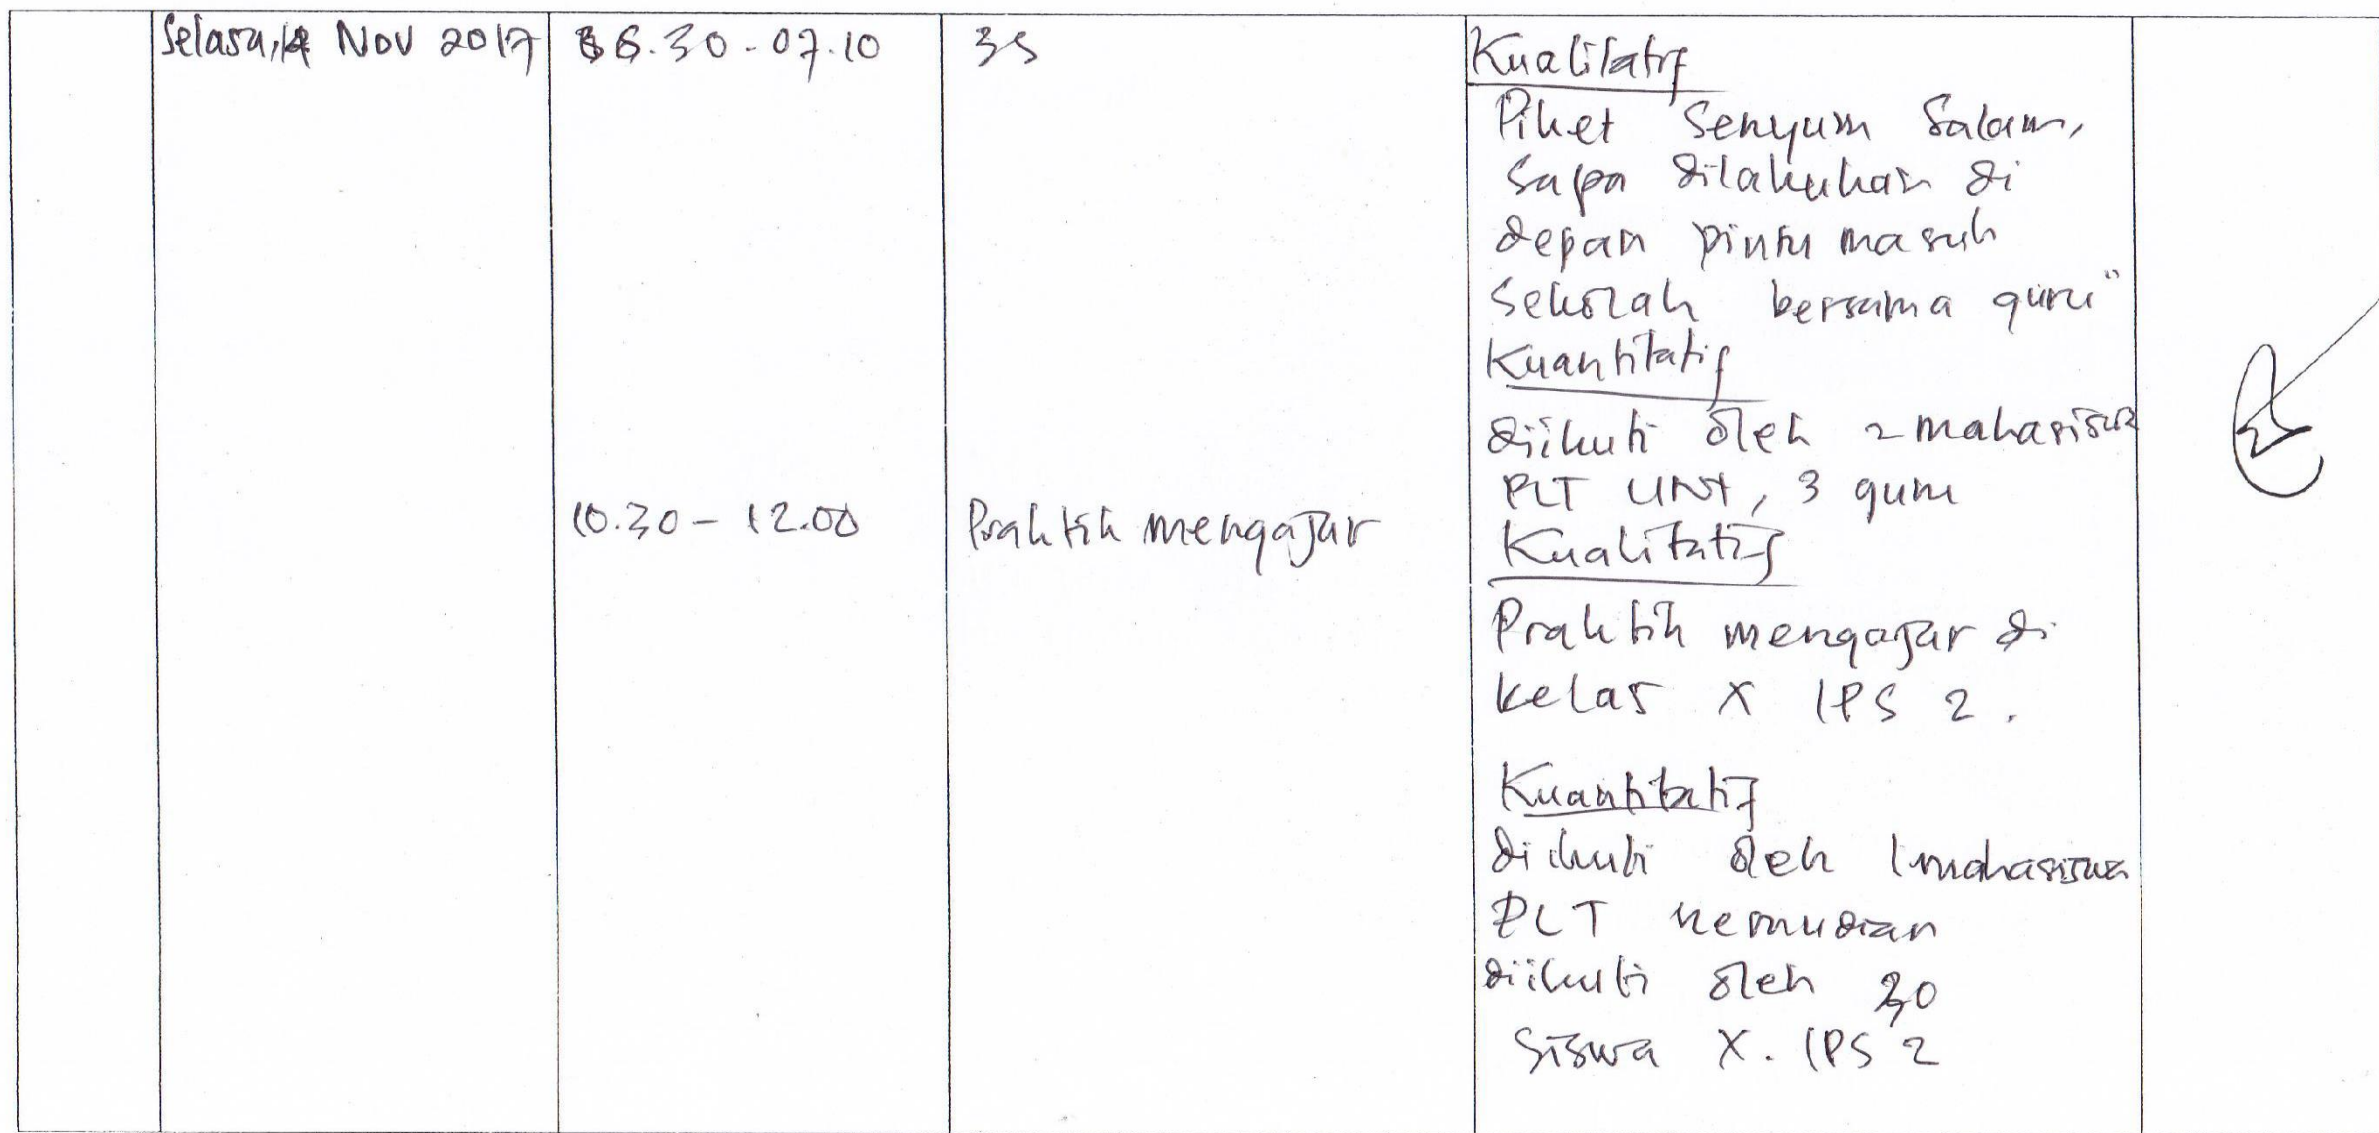 Selasa, 14 Nov 2017 06.30 - 07.10 3S Kualitatif
Piket Senyum Salam,
Sapa dilakukan di
depan pintu masuk
Sekolah bersama guru"
Kuantitatif
diikuti oleh 2 mahasiswa
PLT UNY, 3 guru
10.30 - 12.00 Praktik mengajar Kualitatif
Praktik mengajar di
kelas X IPS 2.
Kuantitatif
diikuti oleh 1 mahasiswa
PLT kemudian
diikuti oleh 30
Siswa X. IPS 2